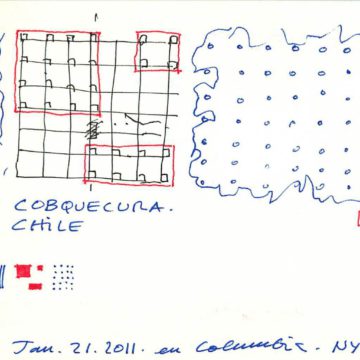 COBQUECURA.
CHILE
Jan. 21. 2011. en Columbia. NY